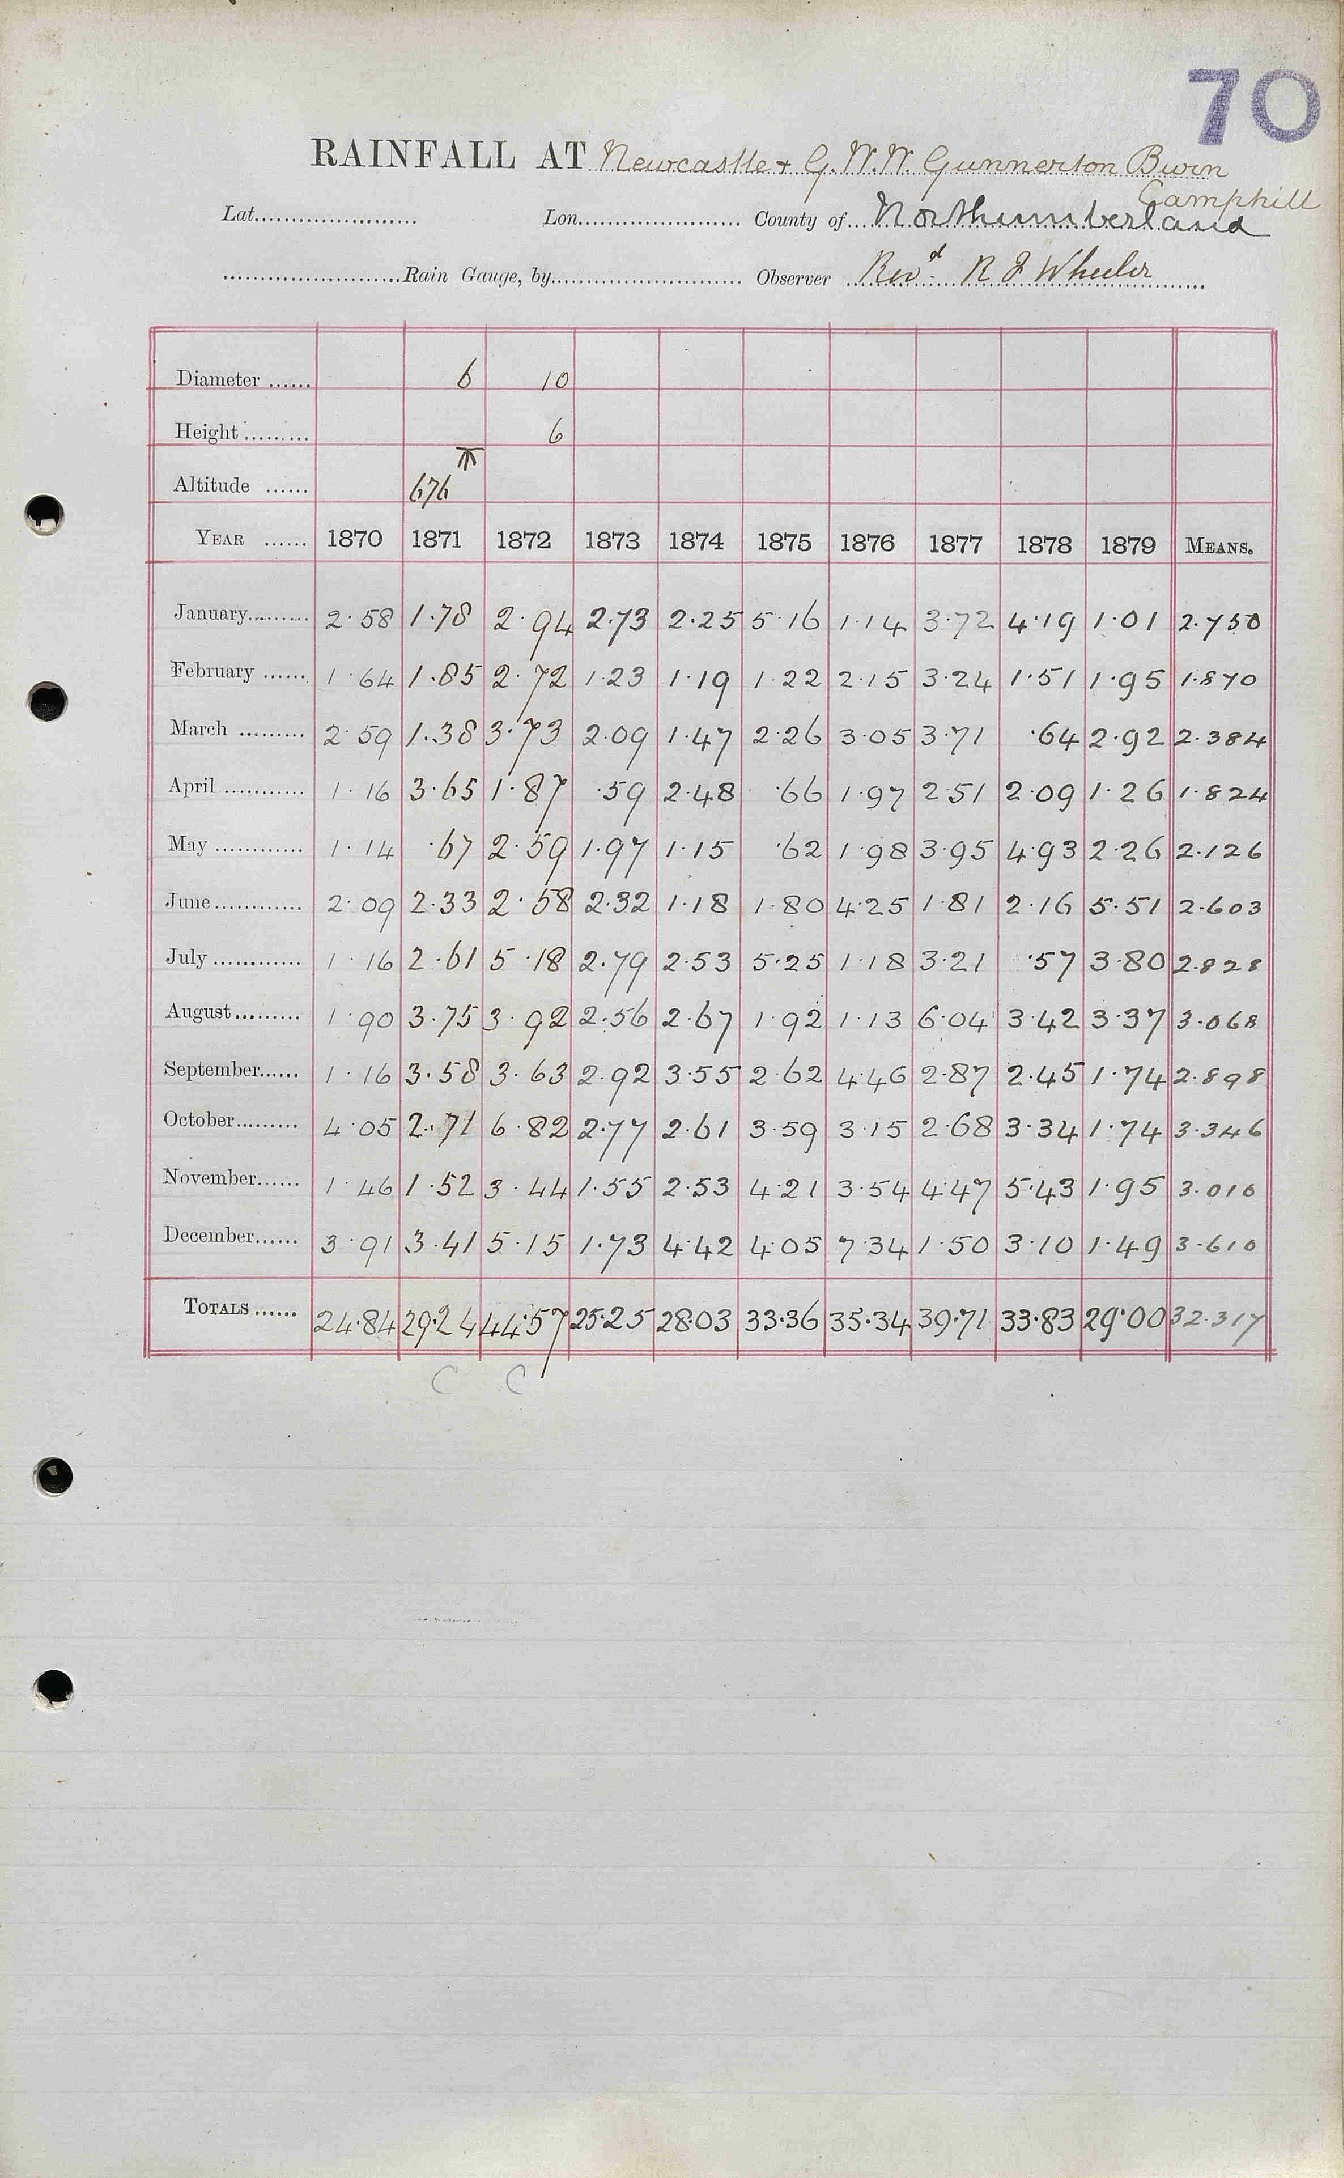 70
RAINFALL AT Newcastle & G. W. W. Gunnerton Burn
Camphill
Lat...................... Lon........................ County of Northumberland
........................Rain Gauge, by........................... Observer Rev.d R J Wheeler
Diameter ...... 6 10
Height ......... 6
Altitude ...... 676
YEAR ...... 1870 1871 1872 1873 1874 1875 1876 1877 1878 1879 MEANS.
January......... 2·58 1·78 2·94 2·73 2·25 5·16 1·14 3·72 4·19 1·01 2·750
February ...... 1·64 1·85 2·72 1·23 1·19 1·22 2·15 3·24 1·51 1·95 1·870
March ......... 2·59 1·38 3·73 2·09 1·47 2·26 3·05 3·71 ·64 2·92 2·384
April ........... 1·16 3·65 1·87 ·59 2·48 ·66 1·97 2·51 2·09 1·26 1·824
May ............ 1·14 ·67 2·59 1·97 1·15 ·62 1·98 3·95 4·93 2·26 2·126
June............ 2·09 2·33 2·58 2·32 1·18 1·80 4·25 1·81 2·16 5·51 2·603
July ............ 1·16 2·61 5·18 2·79 2·53 5·25 1·18 3·21 ·57 3·80 2·828
August......... 1·90 3·75 3·92 2·56 2·67 1·92 1·13 6·04 3·42 3·37 3·068
September...... 1·16 3·58 3·63 2·92 3·55 2·62 4·46 2·87 2·45 1·74 2·898
October......... 4·05 2·71 6·82 2·77 2·61 3·59 3·15 2·68 3·34 1·74 3·346
November...... 1·46 1·52 3·44 1·55 2·53 4·21 3·54 4·47 5·43 1·95 3·010
December...... 3·91 3·41 5·15 1·73 4·42 4·05 7·34 1·50 3·10 1·49 3·610
TOTALS ...... 24·84 29·24 44·57 25·25 28·03 33·36 35·34 39·71 33·83 29·00 32·317
C C